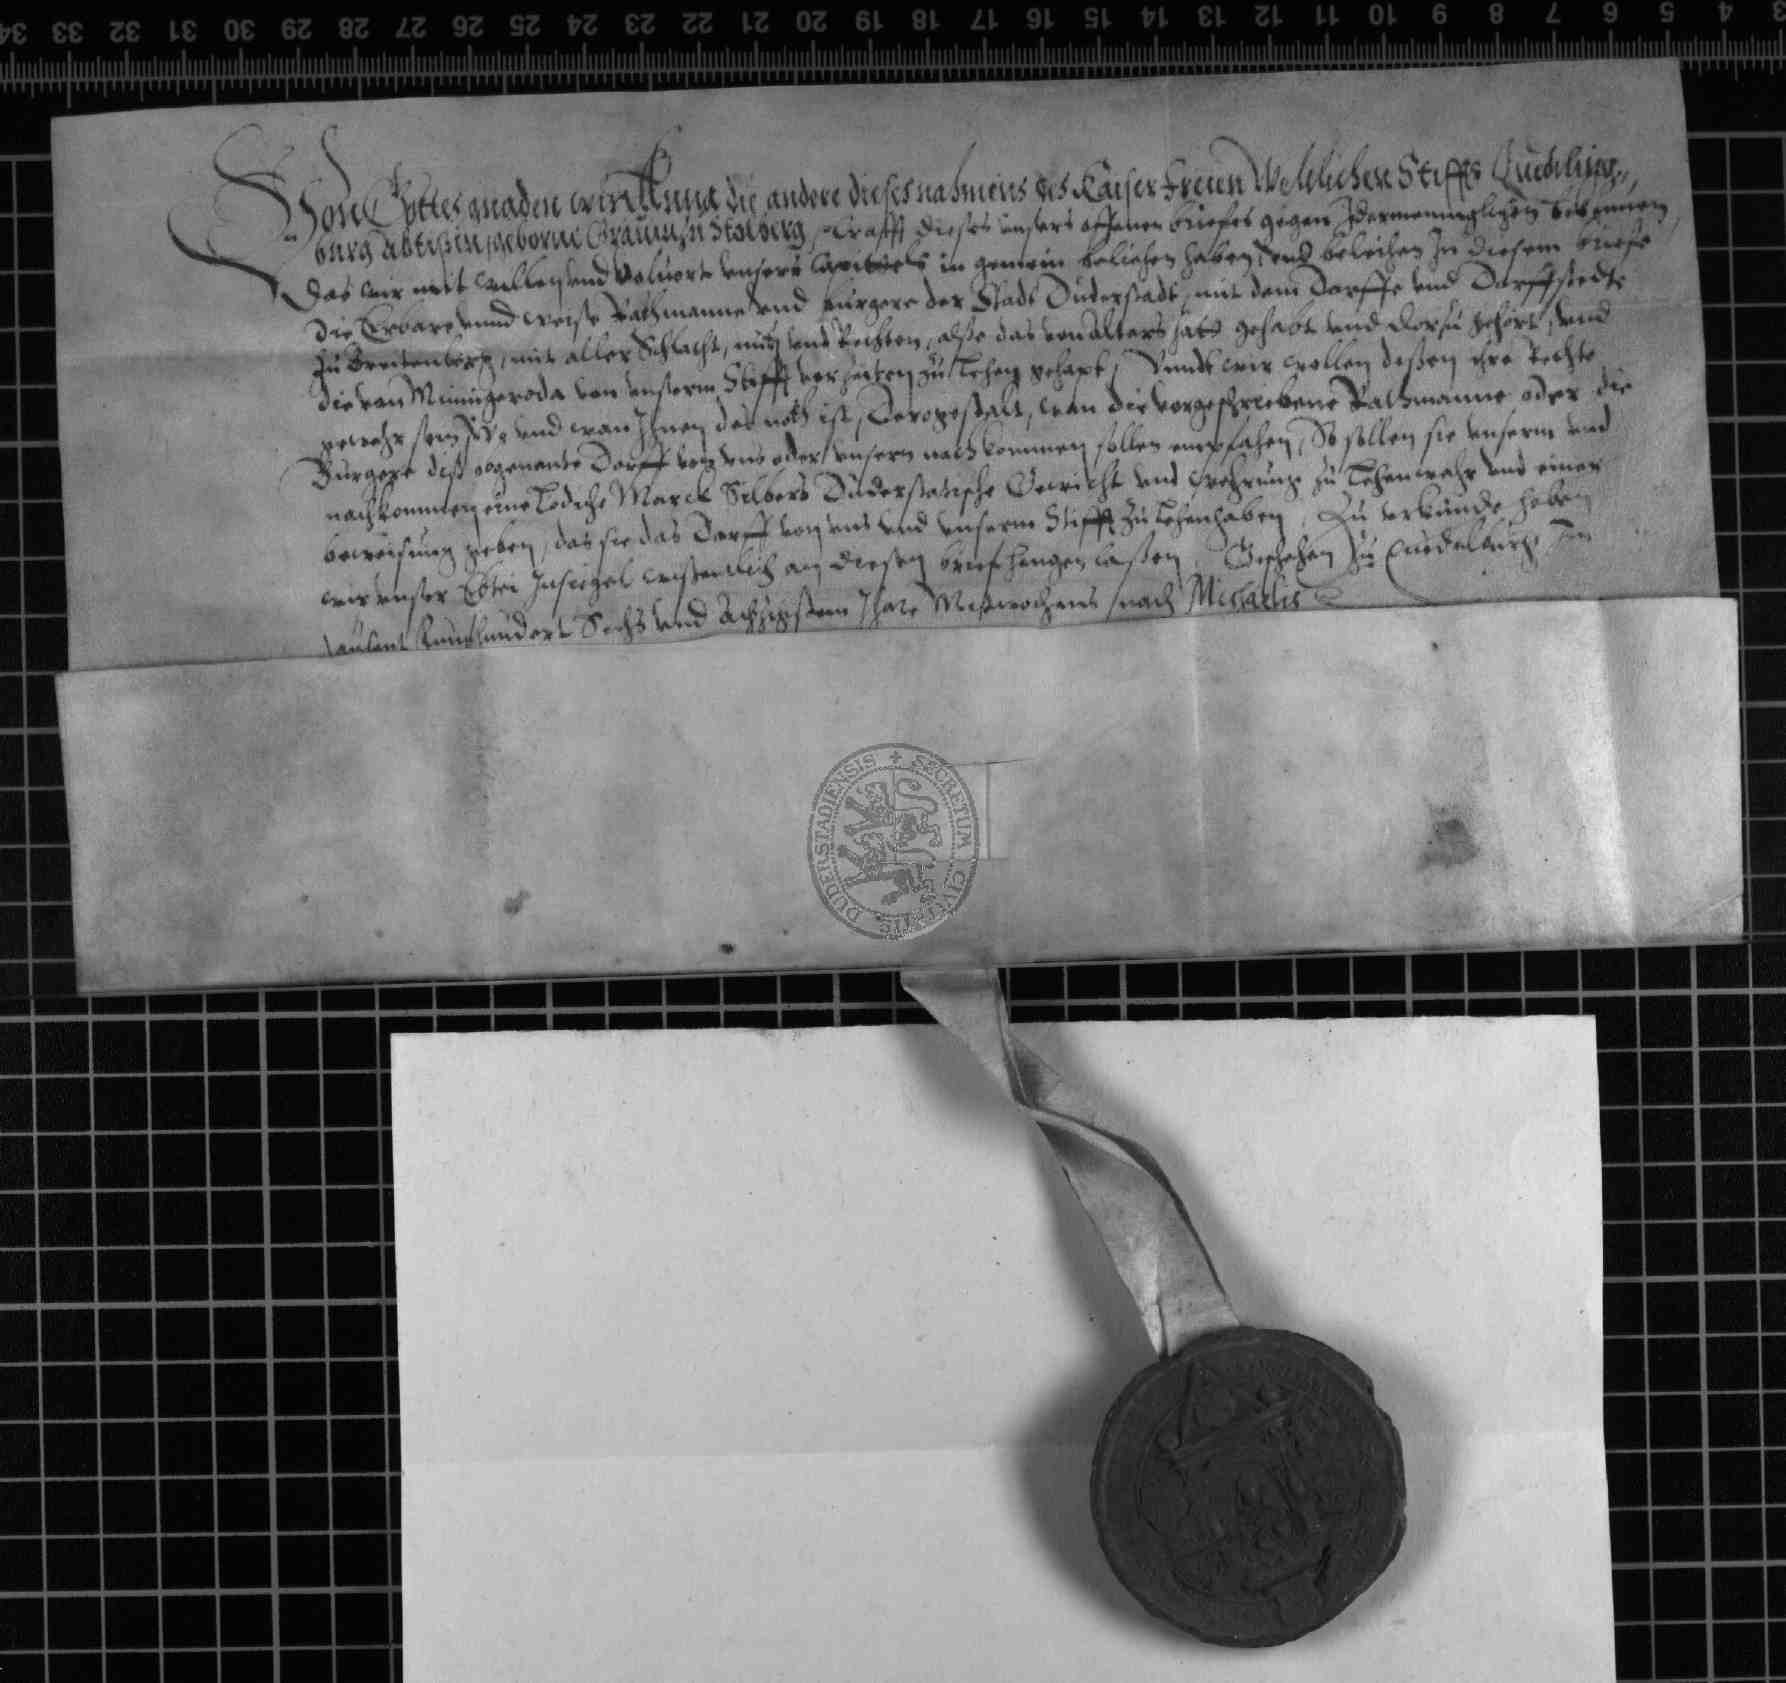 34 33 32 31 30 29 28 27 26 25 24 23 22 21 20 19 18 17 16 15 14 13 12 11 10 9 8 7 6 5 4 3
Von Gottes gnaden wir Anna die andere dieses nahmens des Kaiser Freien Weltlichen Stiffts Quedling„
burg Abtißin, geborne Grauin zu Stolberg, Crafft dieses unsers offenen briefes gegen Jdermenniglichen bekennen,
Das wir mit willen und volwort unsers Capittels in gemein beliehen haben, und beleihen Jn diesem briefe
die Erbare unnd weise Rathmanne und burgere der Stadt Duderstadt, mit dem Dorffe und Dorffstedte
zu Breitenberg, mit aller Schlacht, nutz und Rechten, alße das von Alters hatt gehabt und darzu gehört, und
die von Minnigeroda von unserm Stifft vor zeiten zu Lehen gehapt, Unndt wir wollen deßen ihre Rechte
gewehr sein und wan Jhnen des noth ist, Dergestalt, wan die vorgeschriebene Rathmanne oder die
Burgere diß obgenante Dorff von uns oder unsern nachkommen sollen empfahen, So sollen sie unserm und
nachkommen eine Lödiche Marck Silbers Duderstatische Gewicht und wehrung zu Lehenwahr und einer
beweisung geben, das sie das Dorff von uns und unserm Stifft zu Lehen haben, Zu urkunde haben
wir unser Ebtei Jnsiegel wissentlich an diesen brief hengen laßen, Geschehen zu Quedelburg Jm
tausent Funfhundert Sechs und Achzigstem Jhare Mitwochens nach Michaelis
SECRETUM CIVITATIS DUDERSTADIENSIS